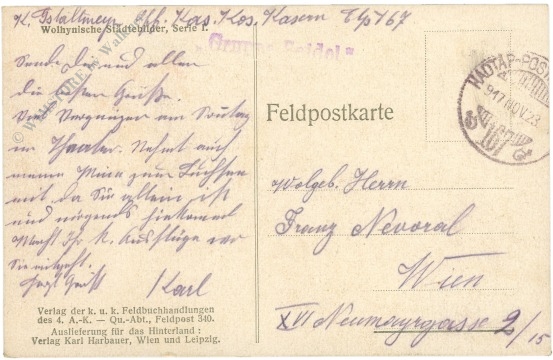 K. Gstaltmeyr, Off. Kas. Kos. Kasern Etp 167
Wolhynische Städtebilder, Serie I.
„Gruppe Seidel“
Sende Dir und allen
die besten Grüße.
Viel Vergnügen am Sonntag
im Theater. Nehmt auch
meinen
mit da Sie allein ist
und nirgends hinkommt
Macht Ihr k. Ausflüge wo
Sie mitgeht.
Herzl. Gruß Karl
Verlag der k. u. k. Feldbuchhandlungen
des 4. A.-K. — Qu.-Abt., Feldpost 340.
Auslieferung für das Hinterland :
Verlag Karl Harbauer, Wien und Leipzig.
Feldpostkarte
HADTÁP-POST
917 NOV. 23
167
Wolgeb. Herrn
Franz Nevoral
Wien
XVI Neumayrgasse 2/15